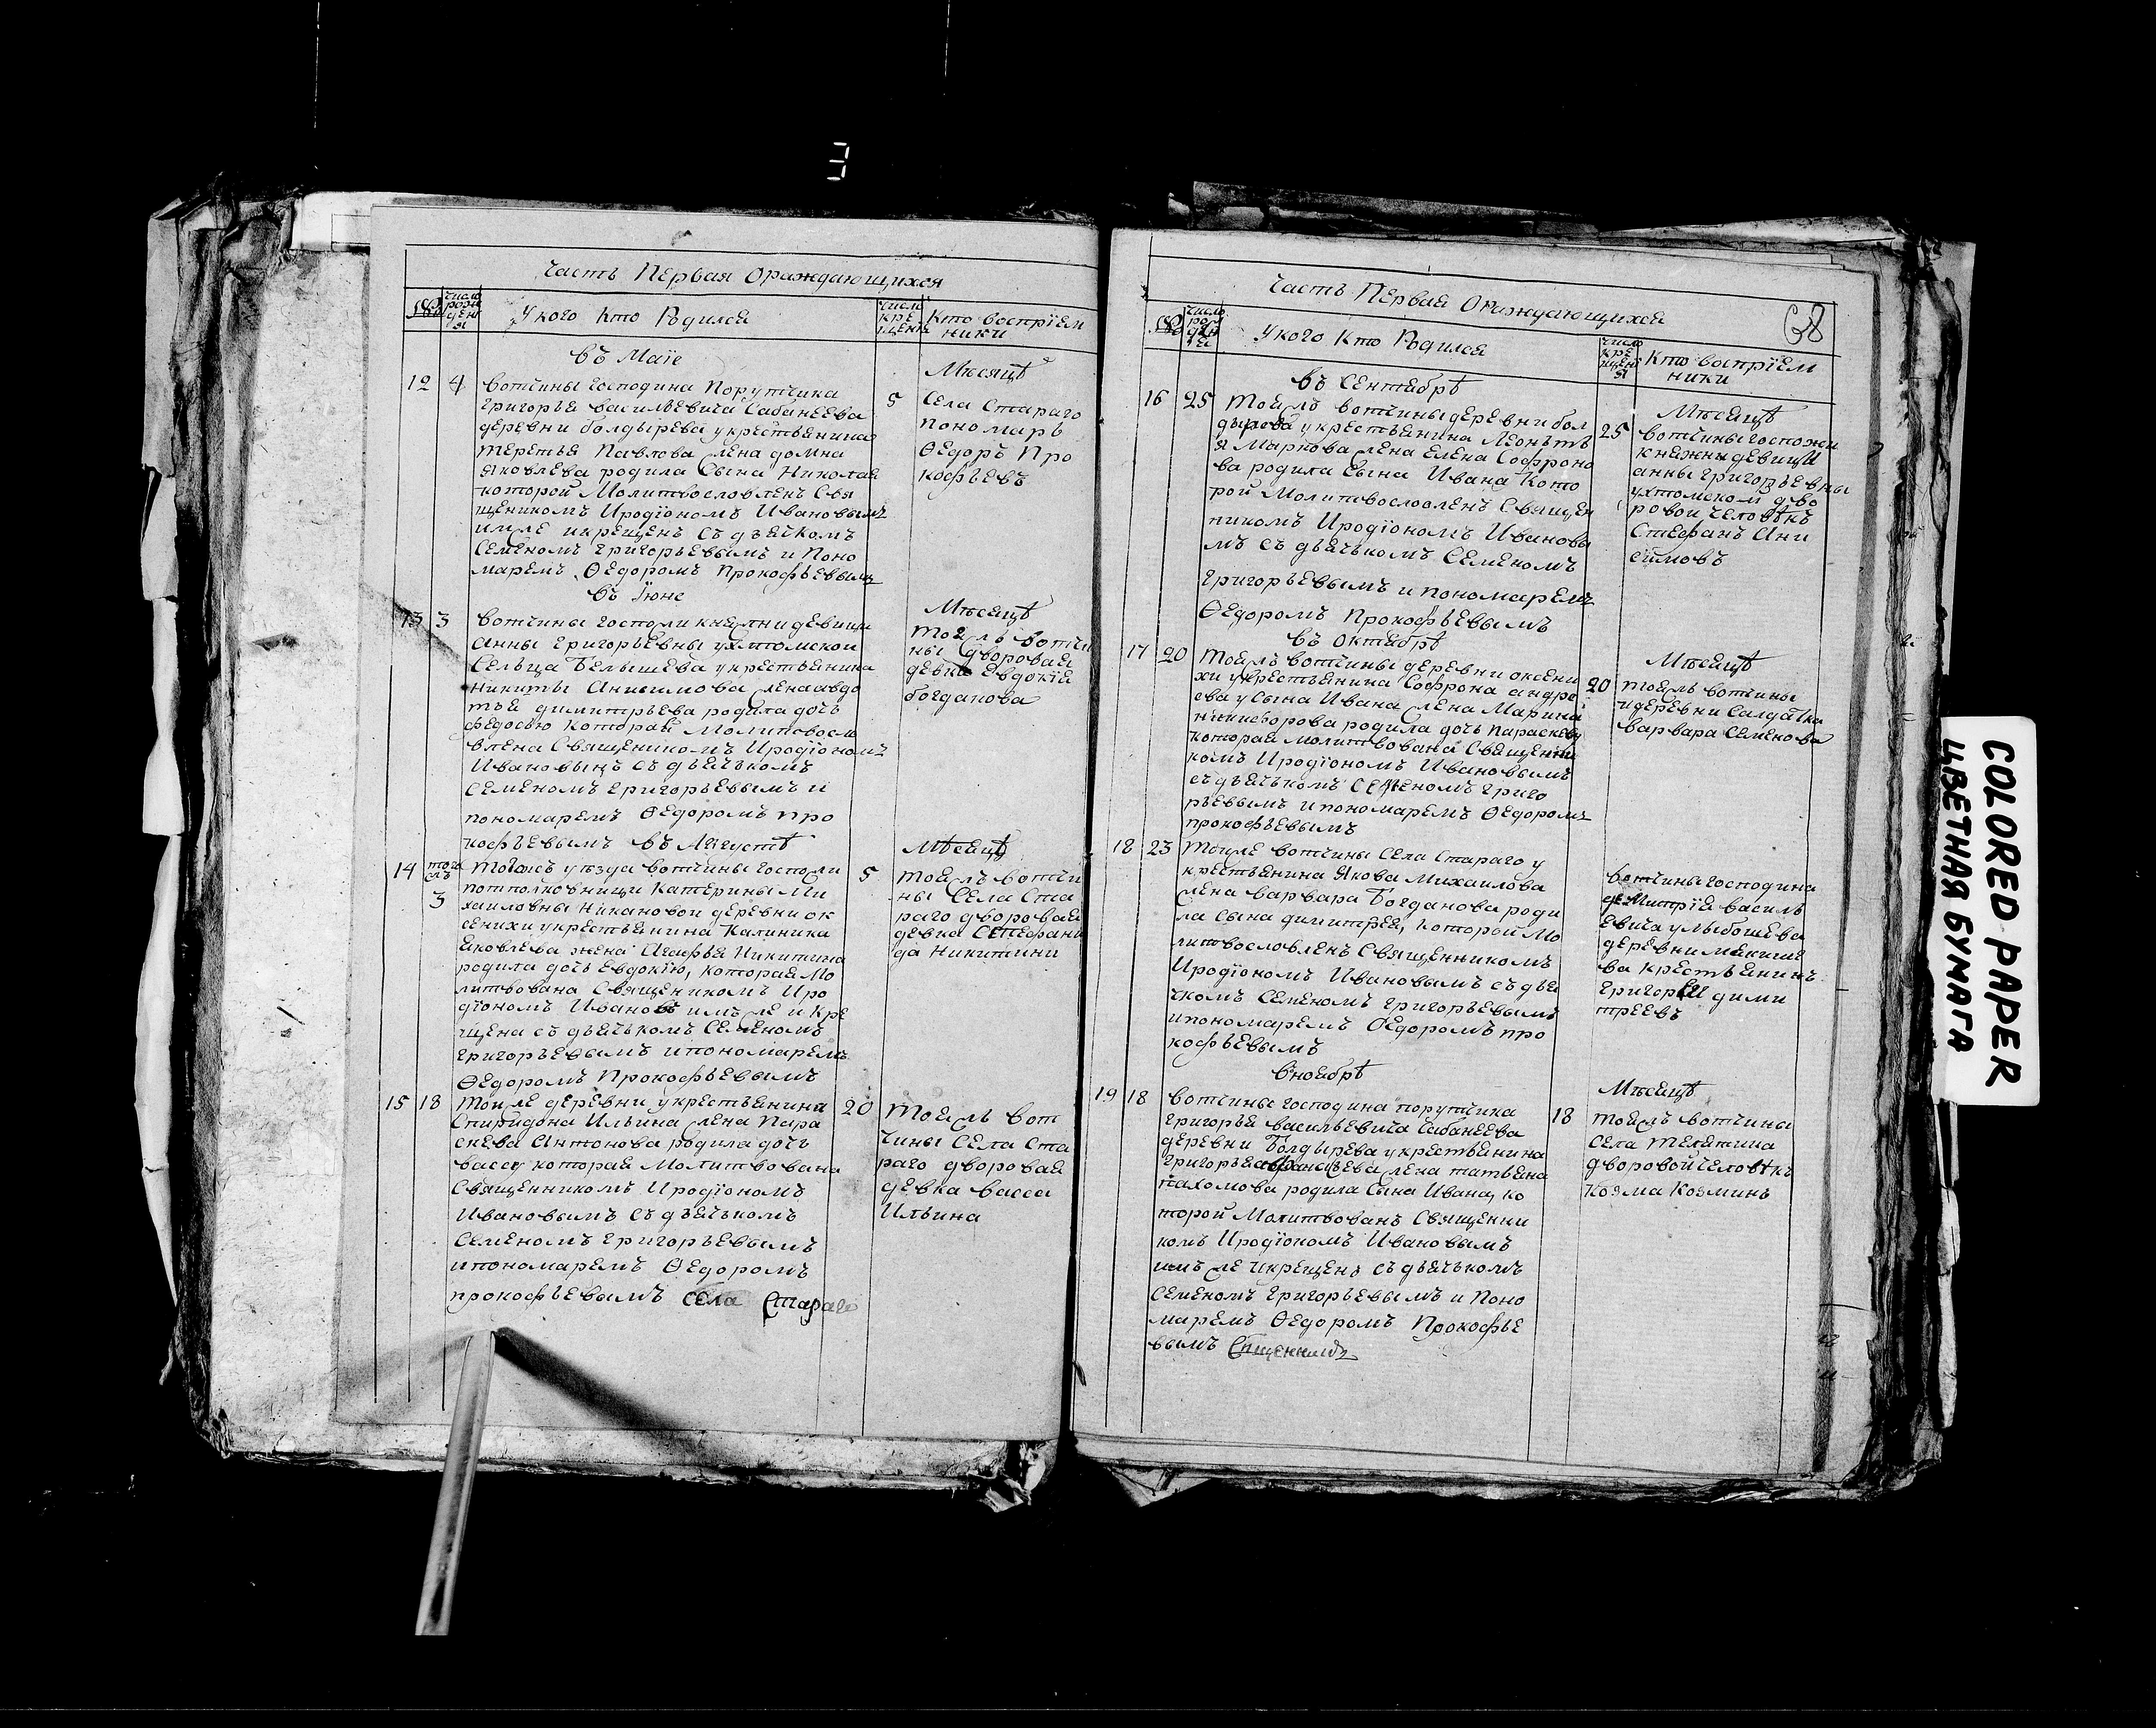 Часть Первая Ораждающихся
число рожденія
У кого Кто Родился
число крещенія
Кто восприемники
въ Маіе
Мѣсяцѣ
12 4
вотчины Господина Порутчика
Григорья васильевича Сабанеева
деревни болдырева у крестьянина
терентья Павлова жена домна
яковлева родила Сына Николая
которой Молитвословленъ Свя
щеникомъ Иродіономъ Ивановымъ
имже и крещенъ съ дьячкомъ
Семеномъ Григорьевымъ и Поно
маремъ Ѳедоромъ Прокофьевымъ
5
Села Стараго
пономарь
Ѳедоръ Про
кофьевъ
въ Іюне
Мѣсяцѣ
13 3
вотчины госпожи княжни девици
Анны Григорьевны ухтомской
Сельца Белышева у крестьянина
Никиты Анисимова жена авдо
тья димитрьева родила дочь
федосью Которая Молитвосло
влена Священикомъ Иродіономъ
Ивановымъ съ дьячькомъ
Семеномъ Григорьевымъ и
пономаремъ Ѳедоромъ про
кофьевымъ
тояжъ вотчи
ны дворовая
девка Евдокія
богданова
въ Августѣ
Мѣсяцѣ
14 того жъ 3
Тогожъ уѣзда вотчины Госпожи
потполковници Катерины Ми
хаиловны Никановои деревни ок
сенихи у крестьянина Калиника
яковлева жена Агафья Никитина
родила дочь Евдокію, которая Мо
литвована Священикомъ Иро
діономъ Ивановымъ имже и кре
щена съ дьячькомъ Семеномъ
Григорьевымъ и пономаремъ
Ѳедоромъ Прокофьевымъ
5
тояжъ вотчи
ны Села Ста
раго дворовая
девка Степани
да Никитини
15 18
Тояже деревни у крестьянина
Спиридона Ильина жена Пара
скева Антонова родила дочь
вассу которая Молитвована
Священникомъ Иродіономъ
Ивановымъ съ дьячькомъ
Семеномъ Григорьевымъ
и пономаремъ Ѳедоромъ
прокофьевымъ Села Стараго
20
Тояжъ вот
чины Села Ста
раго дворовая
девка васса
Ильина
Часть Первая Ораждающихся
68
число рожденія
У кого Кто Родился
число крещенія
Кто восприемники
въ Сентябрѣ
Мѣсяцѣ
16 25
Тояжъ вотчины деревни бол
дырева у крестьянина Леонтъ
я Маркова жена Елена Софроно
ва родила Сына Ивана Кото
рой Молитвословленъ Священ
никомъ Иродіономъ Ивановы
мъ съ дьячькомъ Семеномъ
Григорьевымъ и пономаремъ
Ѳедоромъ Прокофьевымъ
25
вотчины госпожи
княжны девици
анны Григорьевны
ухтомской дво
ровой человѣкъ
Стефанъ Ани
симовъ
въ Октябрѣ
Мѣсяцѣ
17 20
Тояжъ вотчины деревни оксени
хи у крестьянина Софрона андре
ева у Сына Ивана жена Марина
никифорова родила дочь параскеву
которая молитвована Священни
комъ Иродіономъ Ивановымъ
съ дьячькомъ Семеномъ Григо
рьевымъ и пономаремъ Ѳедоромъ
прокофьевымъ
20
тояжъ вотчины
и деревни Салдатка
варвара Семенова
18 23
Тояже вотчины Села Стараго у
крестьянина Якова Михаилова
жена варвара Богданова роди
ла Сына димитрея, которой Мо
литвословленъ Священникомъ
Иродіономъ Ивановымъ съ дья
чкомъ Семеномъ Григорьевымъ
и пономаремъ Ѳедоромъ про
кофьевымъ
вотчины господина
дмитрія василь
евича
деревни
ва крестьянинъ
Григорей дими
треевъ
в ноябрѣ
Мѣсяцѣ
19 18
вотчины господина порутчика
Григорья васильевича Сабанеева
деревни Болдырева у крестьянина
Григорья афанасьева жена татьяна
пахомова родила Сына Ивана, ко
торой Молитвованъ Священни
комъ Иродіономъ Ивановымъ
имже и крещенъ съ дьячькомъ
Семеномъ Григорьевымъ и Поно
маремъ Ѳедоромъ Прокофье
вымъ Священникъ
18
тояжъ вотчины
села телятина
дворовой человѣкъ
Козма Козминъ
COLORED PAPER
ЦВЕТНАЯ БУМАГА